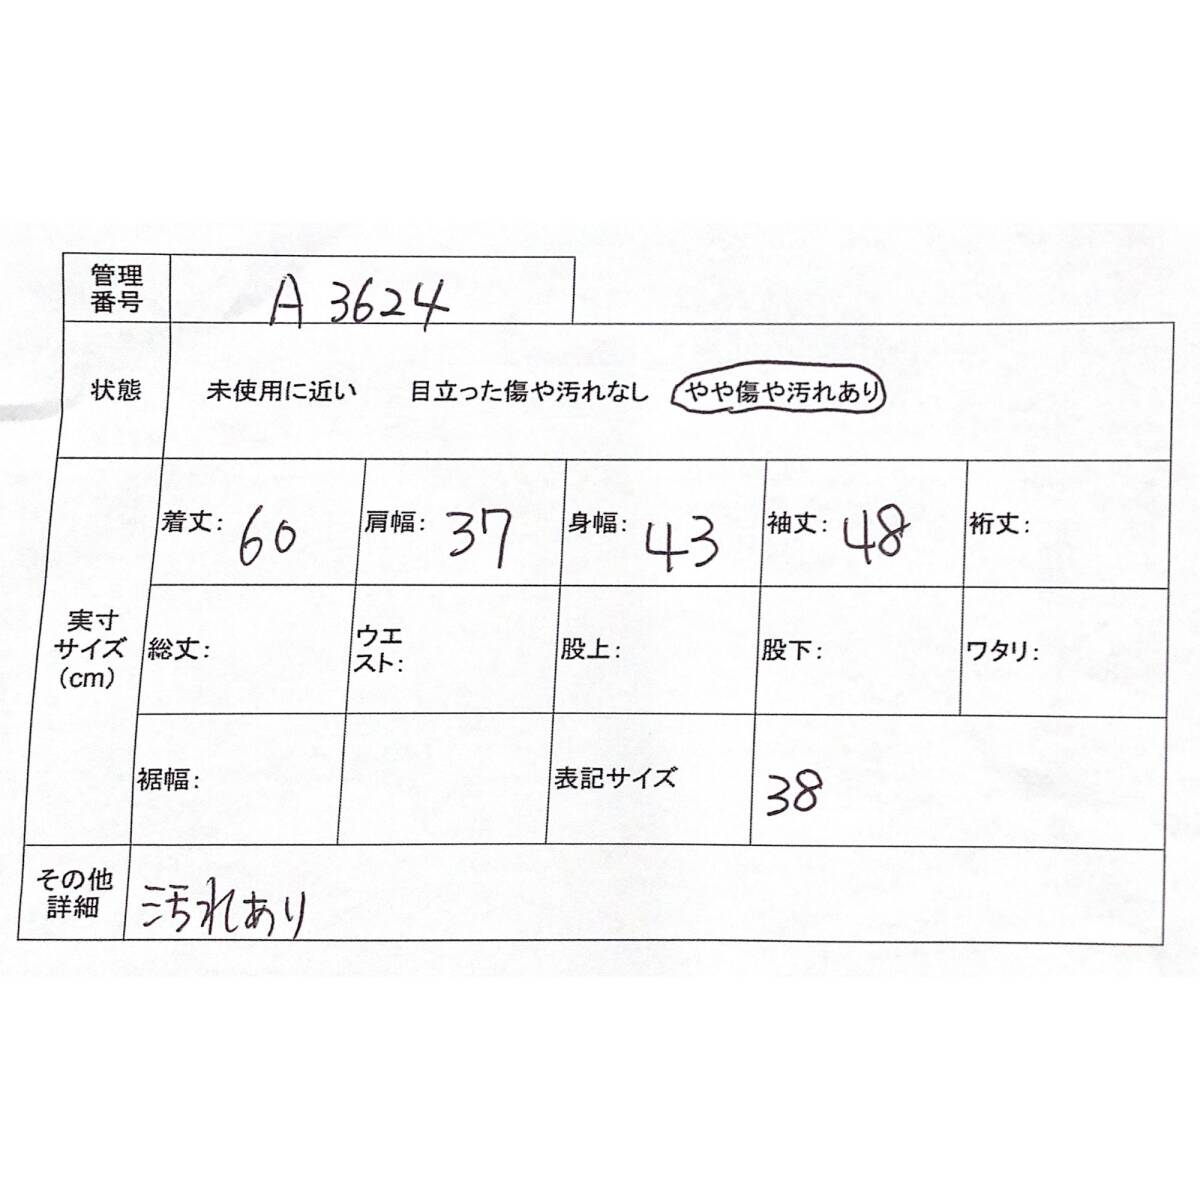 管理
番号
A 3624
状態
未使用に近い 目立った傷や汚れなし やや傷や汚れあり
着丈: 60 肩幅: 37 身幅: 43 袖丈: 48 裄丈:
実寸
サイズ
(cm)
総丈: ウエ
スト: 股上: 股下: ワタリ:
裾幅: 表記サイズ 38
その他
詳細
汚れあり